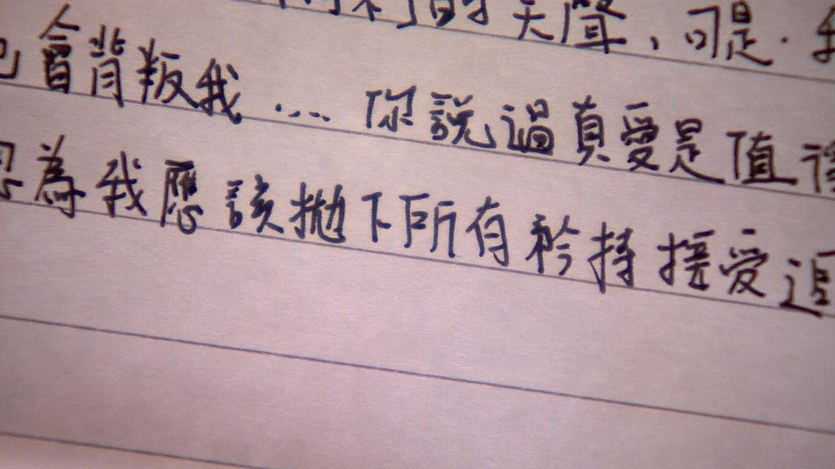 的天聲、可是.
會背叛我....你說過真愛是值
為我應該拋下所有矜持接受追